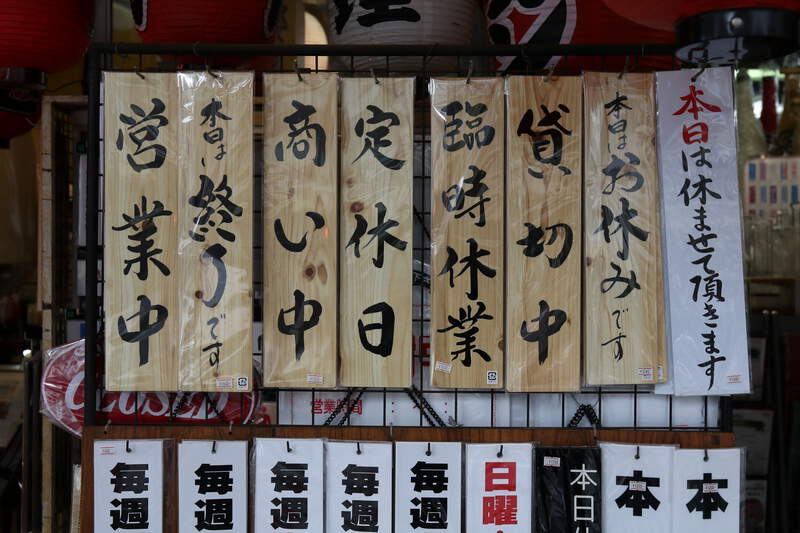 営業中
本日は終了です
商い中
定休日
臨時休業
貸切中
本日はお休みです
本日は休ませて頂きます
CLOSED
営業時
毎週
毎週
毎週
毎週
毎週
日曜
本日
本
本